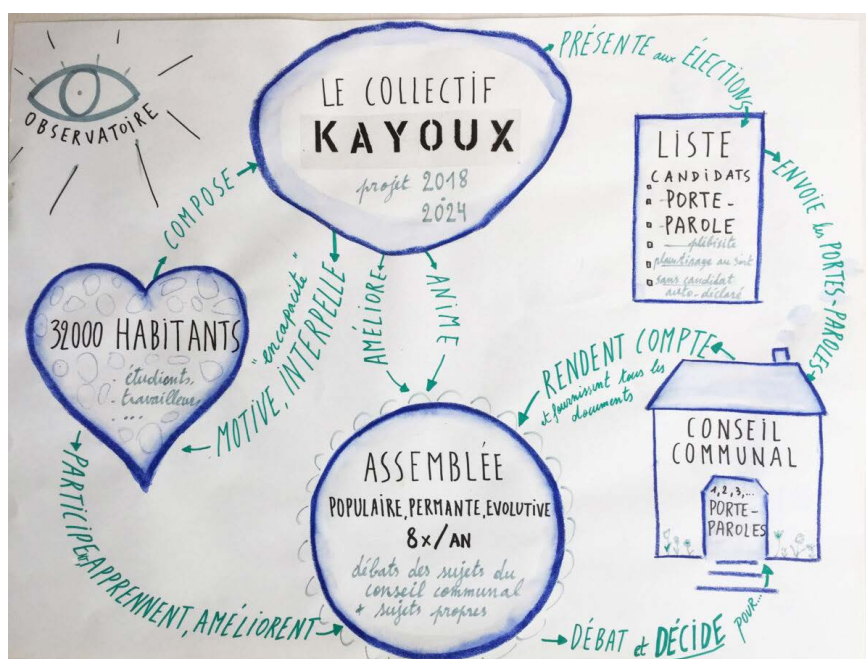 OBSERVATOIRE
LE COLLECTIF
KAYOUX
projet 2018
2024
PRÉSENTE aux ÉLECTIONS
LISTE
CANDIDATS
PORTE-
PAROLE
plébisite
plus tirage au sort
sans candidat
auto-déclaré
ENVOIE les PORTES-PAROLES
COMPOSE
32000 HABITANTS
. étudiants,
. travailleurs,
...
"encapacité"
MOTIVE, INTERPELLE
AMÉLIORE
ANIME
RENDENT COMPTE
et fournissent tous les
documents
CONSEIL
COMMUNAL
1,2,3,...
PORTE-
PAROLES
ASSEMBLÉE
POPULAIRE, PERMANTE, EVOLUTIVE
8x/AN
débats des sujets du
conseil communal
+ sujets propres
APPRENNENT, AMÉLIORENT
DÉBAT et DÉCIDE POUR...